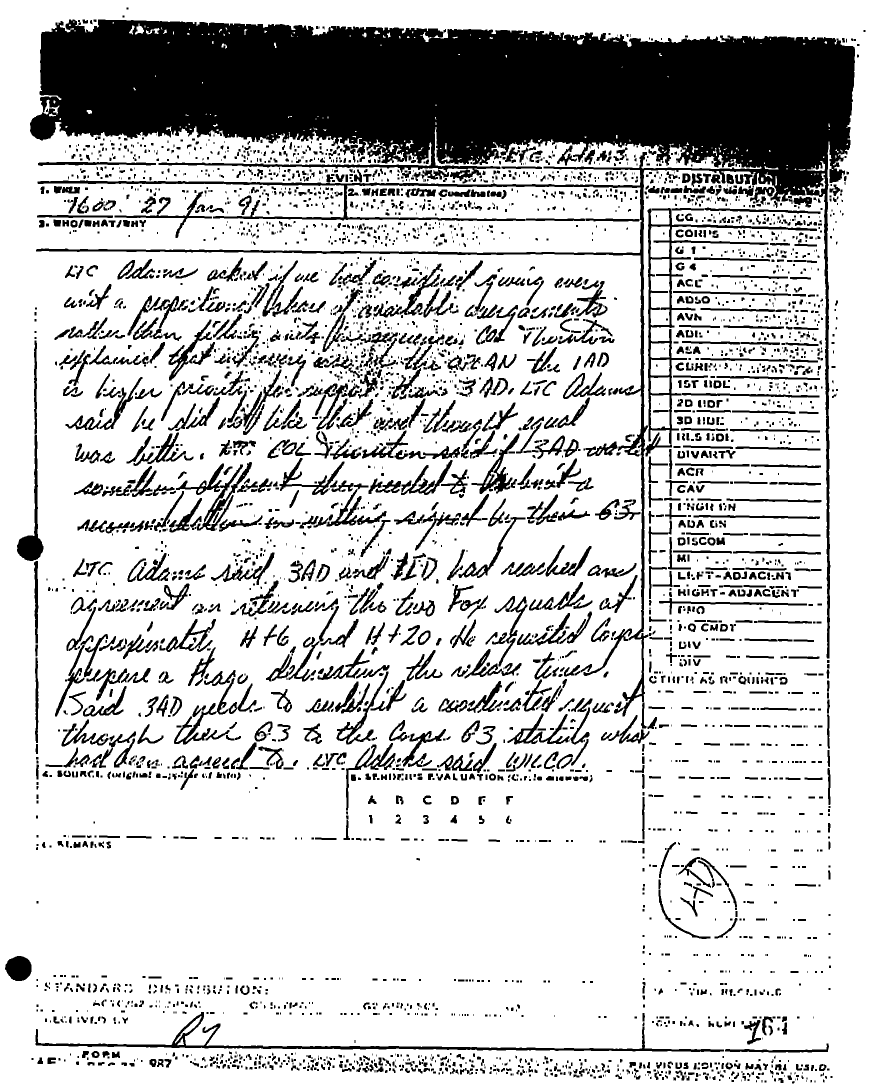 LTC ADAMS
EVENT
DISTRIBUTION
1. WHEN
2. WHERE (UTM Coordinates)
1600 27 Jan 91
3. WHO/WHAT/WHY
LTC Adams asked if we had considered giving every
unit a proportional share of available overgarments
rather than filling units in sequence. COL Thornton
explained that in every case the the 1AD
is higher priority for support than 3AD. LTC Adams
said he did not like that and thought equal
was better. COL Thornton said if 3AD wanted
something different, they needed to submit a
recommendation in writing signed by their G3.
LTC Adams said 3AD and 1ID had reached an
agreement on returning the two Fox squads at
approximately H+6 and H+20. He requested Corps
prepare a frago delineating the release times.
Said 3AD needs to submit a coordinated request
through their G3 to the Corps G3 stating what
had been agreed to. LTC Adams said WILCO.
4. SOURCE (original supplier of info)
5. SENDER'S EVALUATION (Circle answers)
A B C D E F
1 2 3 4 5 6
6. REMARKS
CG
CORPS
G 1
G 4
ACE
ADSO
AVN
ADE
1ST BDE
2D BDE
3D BDE
RES BDE
DIVARTY
ACR
CAV
ENGR BN
ADA BN
DISCOM
MI
LEFT-ADJACENT
RIGHT-ADJACENT
PRO
HQ CMDT
DIV
DIV
OTHER AS REQUIRED
STANDARD DISTRIBUTION:
RECEIVED BY
FORM
987
PREVIOUS EDITION MAY BE USED.